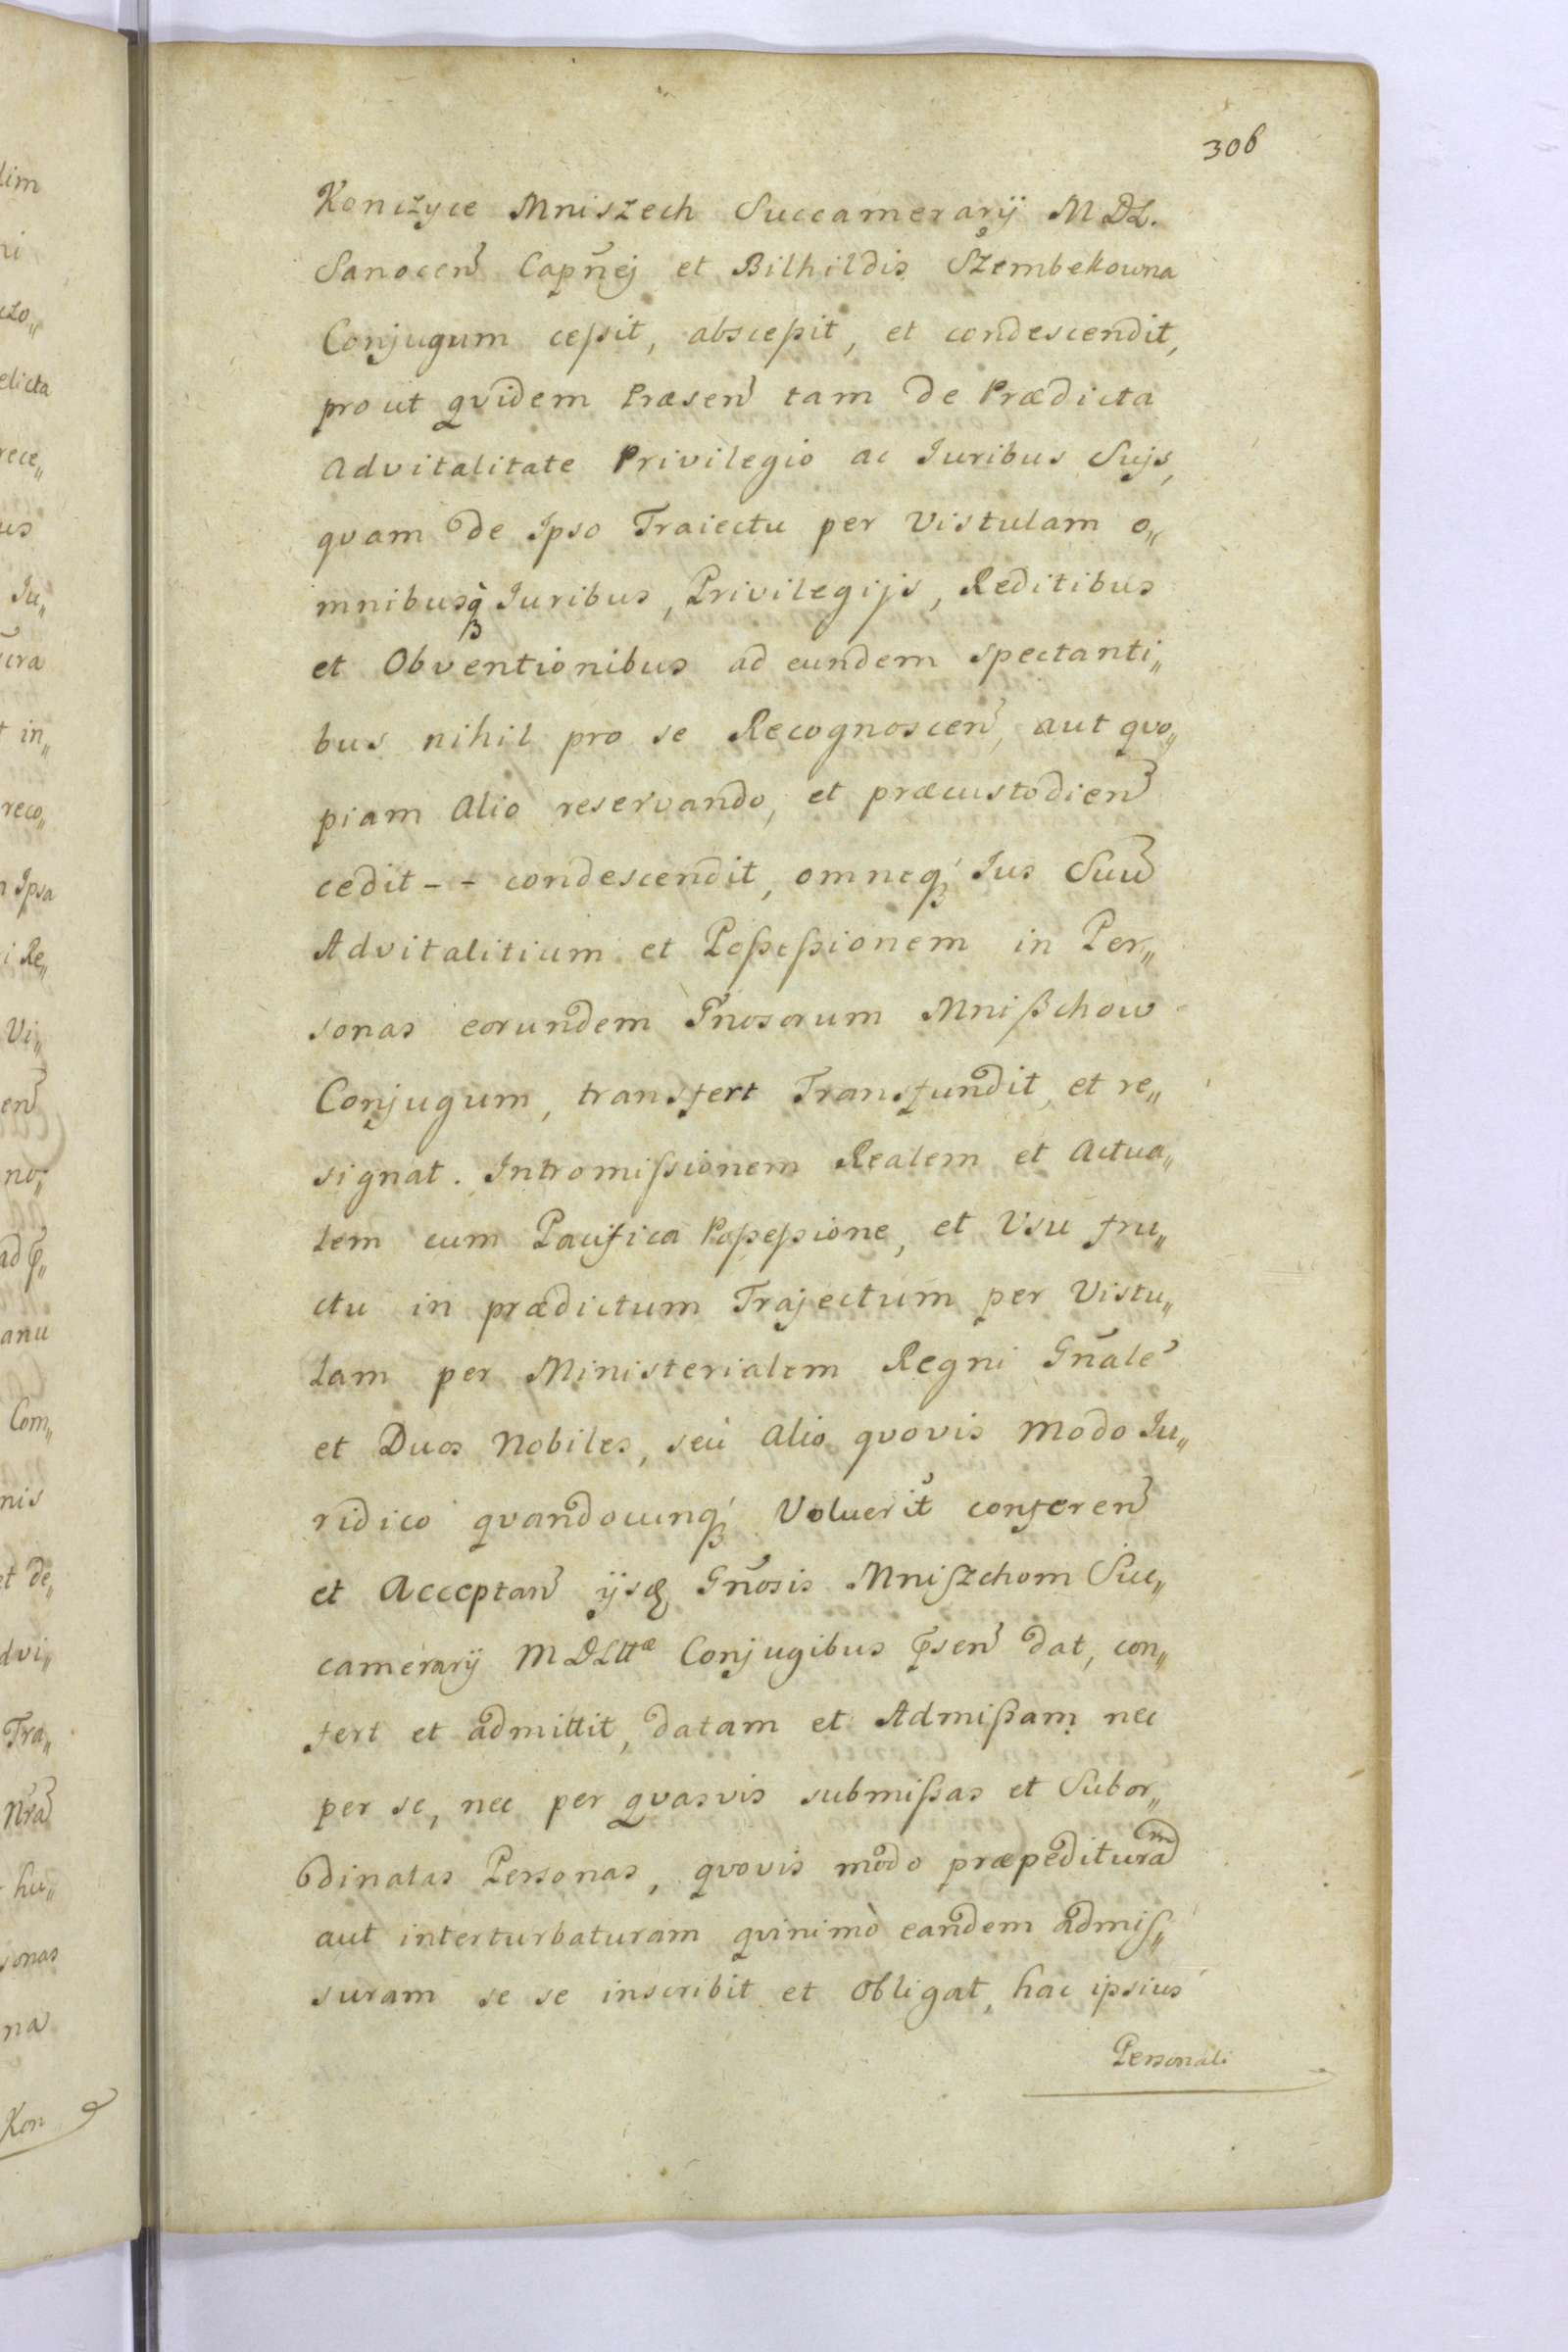 306
Kończyce Mniszech Succamerarij MDL.
Sanocen̄ Capn̄ej et Bilhildis Szembekowna
Conjugum ceſsit, absceſsit, et condescendit,
prout qvidem Præsen̄ tam de Prædicta
Advitalitate Privilegio ac Iuribus Sujs,
qvam de Ipso Traiectu per Vistulam o„
mnibusq̀ Iuribus, Privilegijs, Reditibus
et Obventionibus ad eundem spectanti„
bus nihil pro se Recognoscen̄, aut qvo„
piam Alio reservando, et præcustodien̄
cedit - - condescendit, omneq́ Ius Suū
Advitalitium et Poſseſsionem in Per„
sonas eorundem Gn̄osorum Mniſzchow
Conjugum, transfert Transfundit, et re„
signat. Intromiſsionem Realem et Actua„
lem cum Pacifica Poſseſsione, et Vsu fru„
ctu in prædictum Trajectum per Vistu„
lam per Ministerialem Regni Gn̄alē
et Duos Nobiles, seù Alio qvovis modo Iu„
ridico qvandocunq́ Voluerīt conferen̄
et Acceptan̄ ijsd Gn̄osis Mniſzchom Suc„
camerarij MDLttæ Conjugibus p̄sen̄ dat, con„
fert et admittit, datam et Admiſsam nec
per se, nec per qvasvis submiſsas et Subor„
dinatas Personas, qvovis modo præpedituram
aut interturbaturam qvinimò eandem admiſ„
suram se se inscribit et obligat, hac ipsius
Personali
lim
ni
elicta
rece„
us
Iu„
t in„
reco„
Ipsa
i Re„
Vi„
en̄
no„
anu
Com„
nis
et de„
dvi„
Tra„
Nrā
hu„
sonas
na
Kon